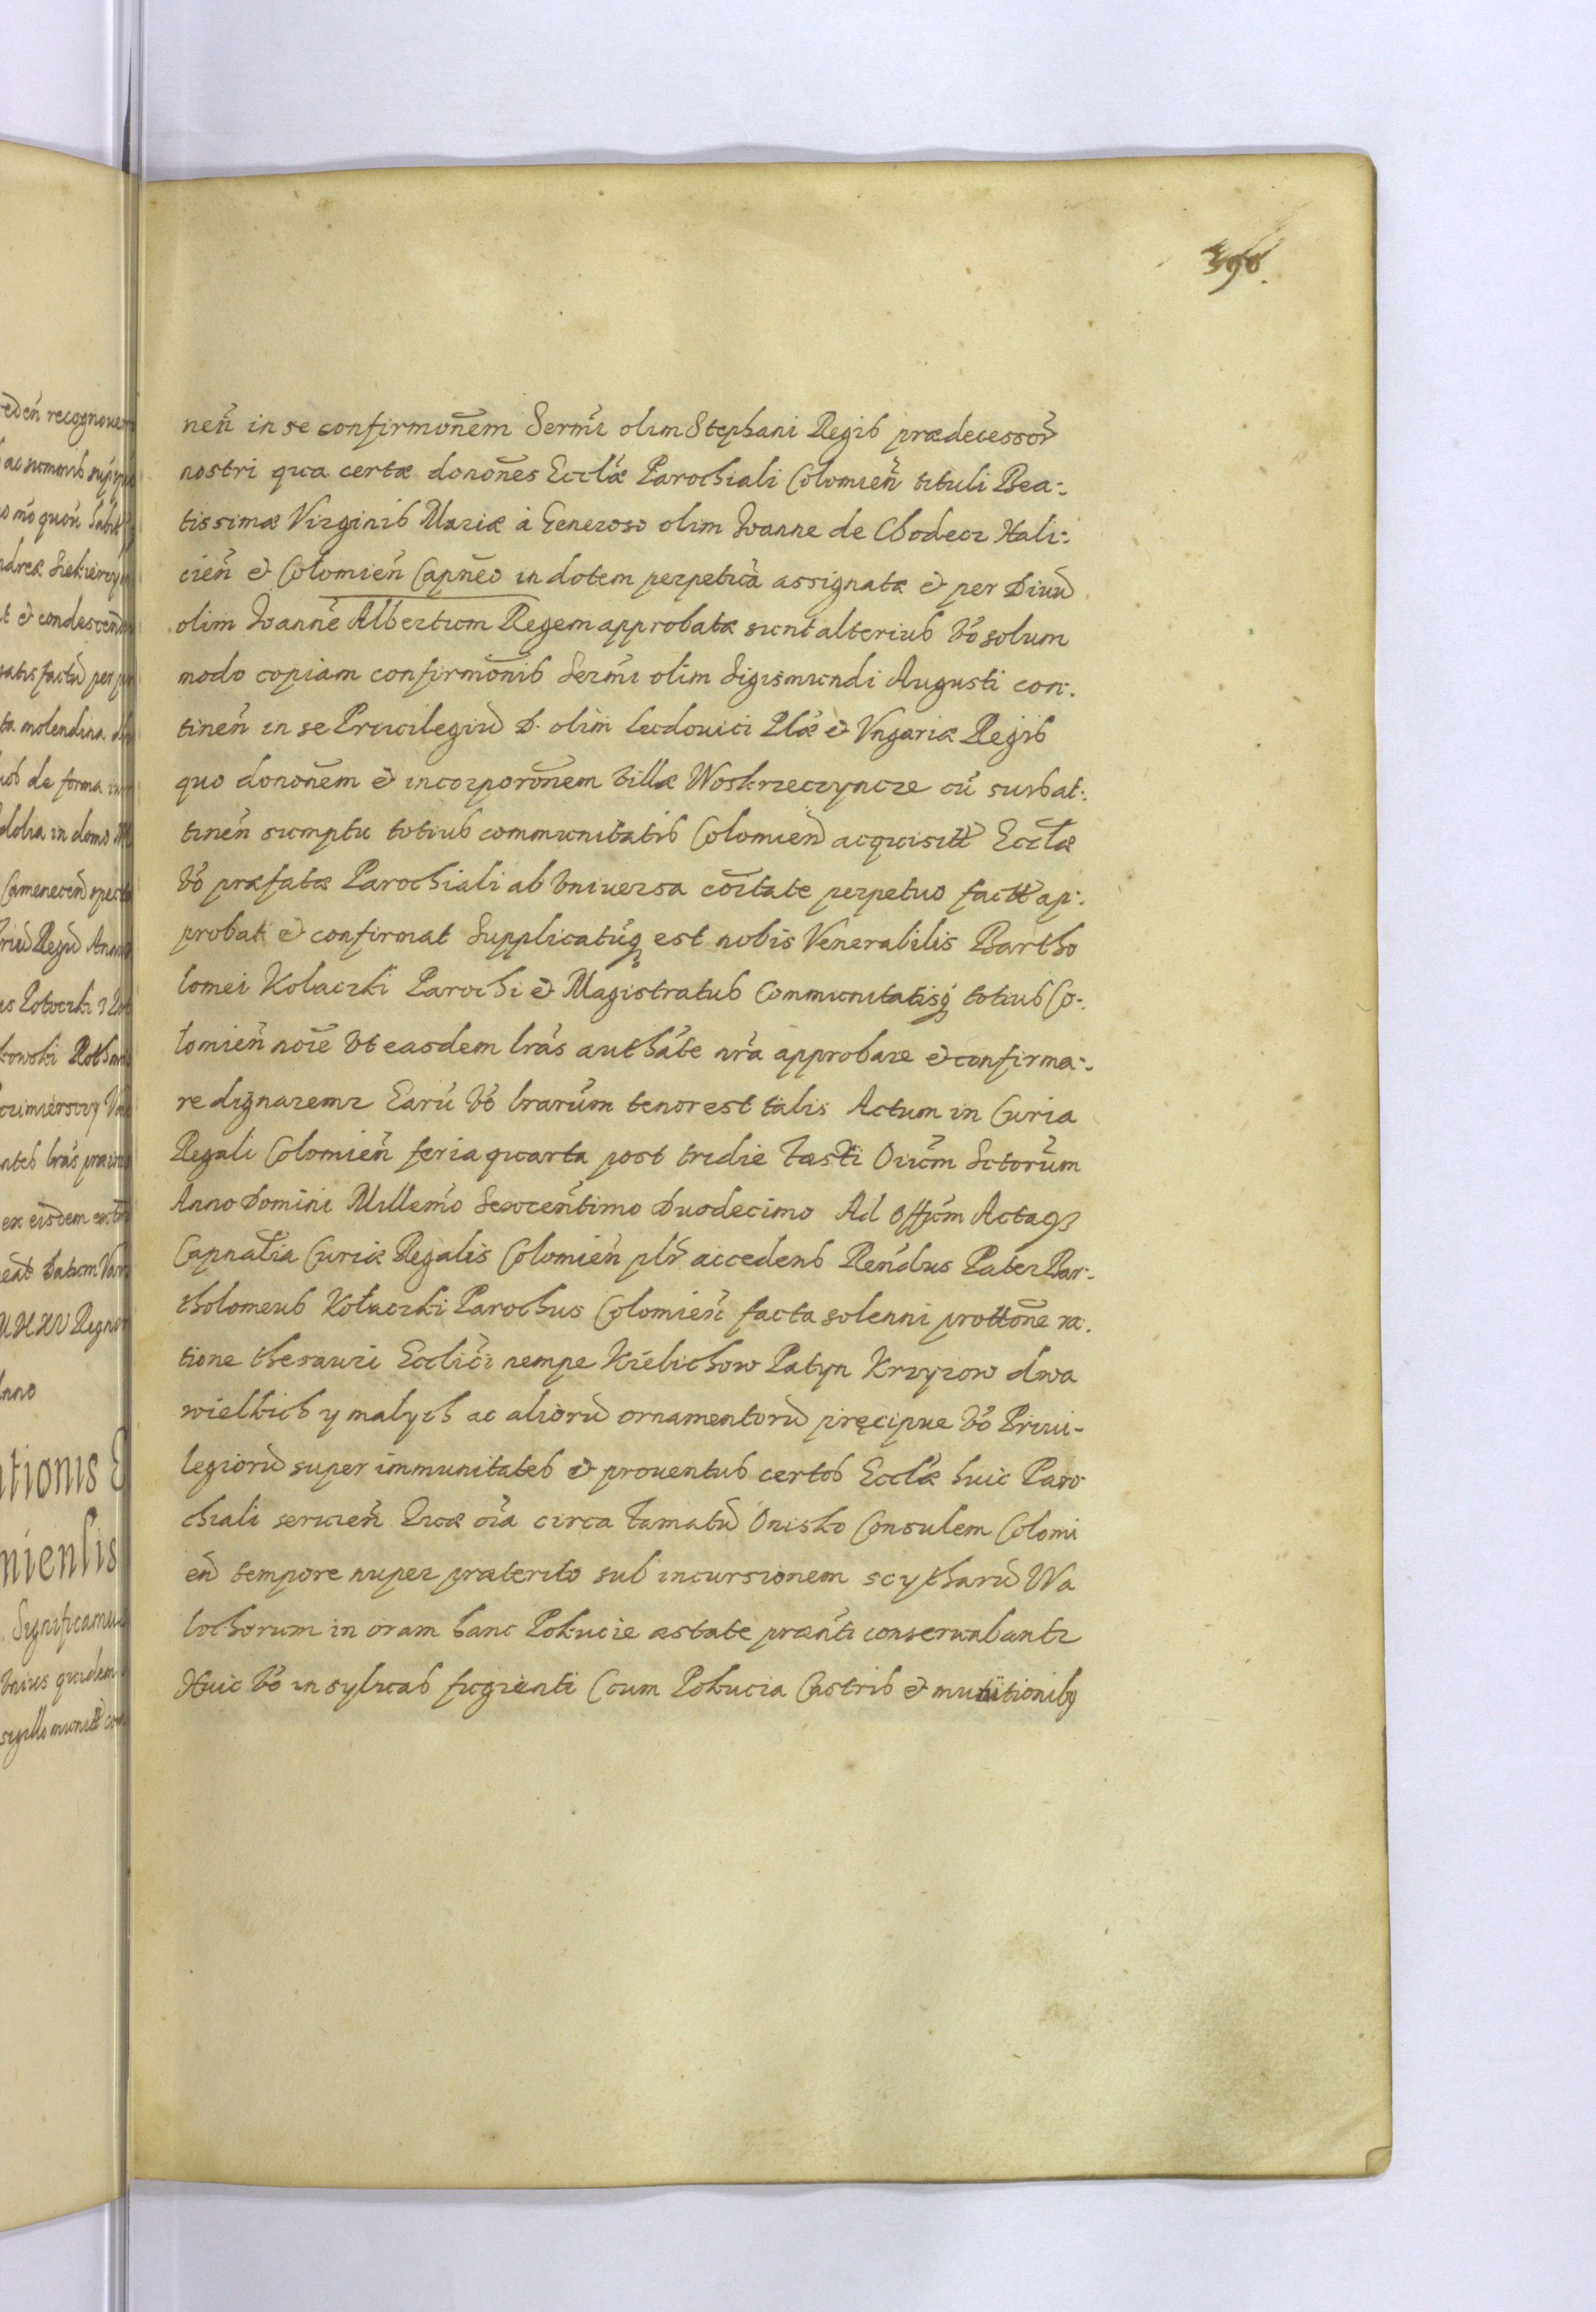 396.
neñ in se confirmoñem Sermi olim Stephani Regis prædecessor̃
nostri qua certæ donoñes Ecclæ Parochiali Colomieñ tituli Bea:
tissimæ Virginis Mariæ à Generoso olim Joanne de Chodecz Hali:
cieñ et Colomieñ Capneo in dotem perpetuã assignatæ et per Diuũ
olim Joannẽ Albertum Regem approbatæ sunt alterius vo solum
modo copiam confirmonis Sermi olim Sigismundi Augusti con:
tineñ in se Priuilegiũ D. olim Ludouici Plæ et Vngariæ Regis
quo donoñem et incorporoñem villæ Woskrzeczyncze cũ suis at:
tineñ sumptu totius communitatis Colomieñ acquisitt Ecclæ
vo præfatæ Parochiali ab vniuersa coitate perpetuo factt ap:
probat et confirmat Supplicatũq est nobis Venerabilis Bartho
lomei Kołaczki Parochi et Magistratus Communitatisq totius Co:
lomieñ noie Vt easdem lras authate nra approbare et confirma:
re dignaremr Earũ vo lrarum tenor est talis Actum in Curia
Regali Colomieñ feria quarta post tridie Festi Oium Sctorum
Anno Domini Millemo Sexcentimo Duodecimo Ad Offium Actaq
Capnalia Curiæ Regalis Colomieñ plr accedens Rendus Pater Bar:
tholomeus Kołaczki Parochus Colomieñ facta solenni prottone ra:
tione thesauri Ecclici nempe Kielichow Patyn Krzyzow dwa
wielkich y malych ac aliorũ ornamentorũ pręcipue vo Priui-
legiorũ super immunitates et prouentus certos Ecclæ huic Paro
chiali seruieñ Quæ oia circa Famatũ Onisko Consulem Colomi
eñ tempore nuper præterito sub incursionem scytharũ Wa
lochorum in oram hanc Pokucie æstate prænti conseruabantr
Huic vo in syluas fugienti Cum Pokucia Castris et munitionibq